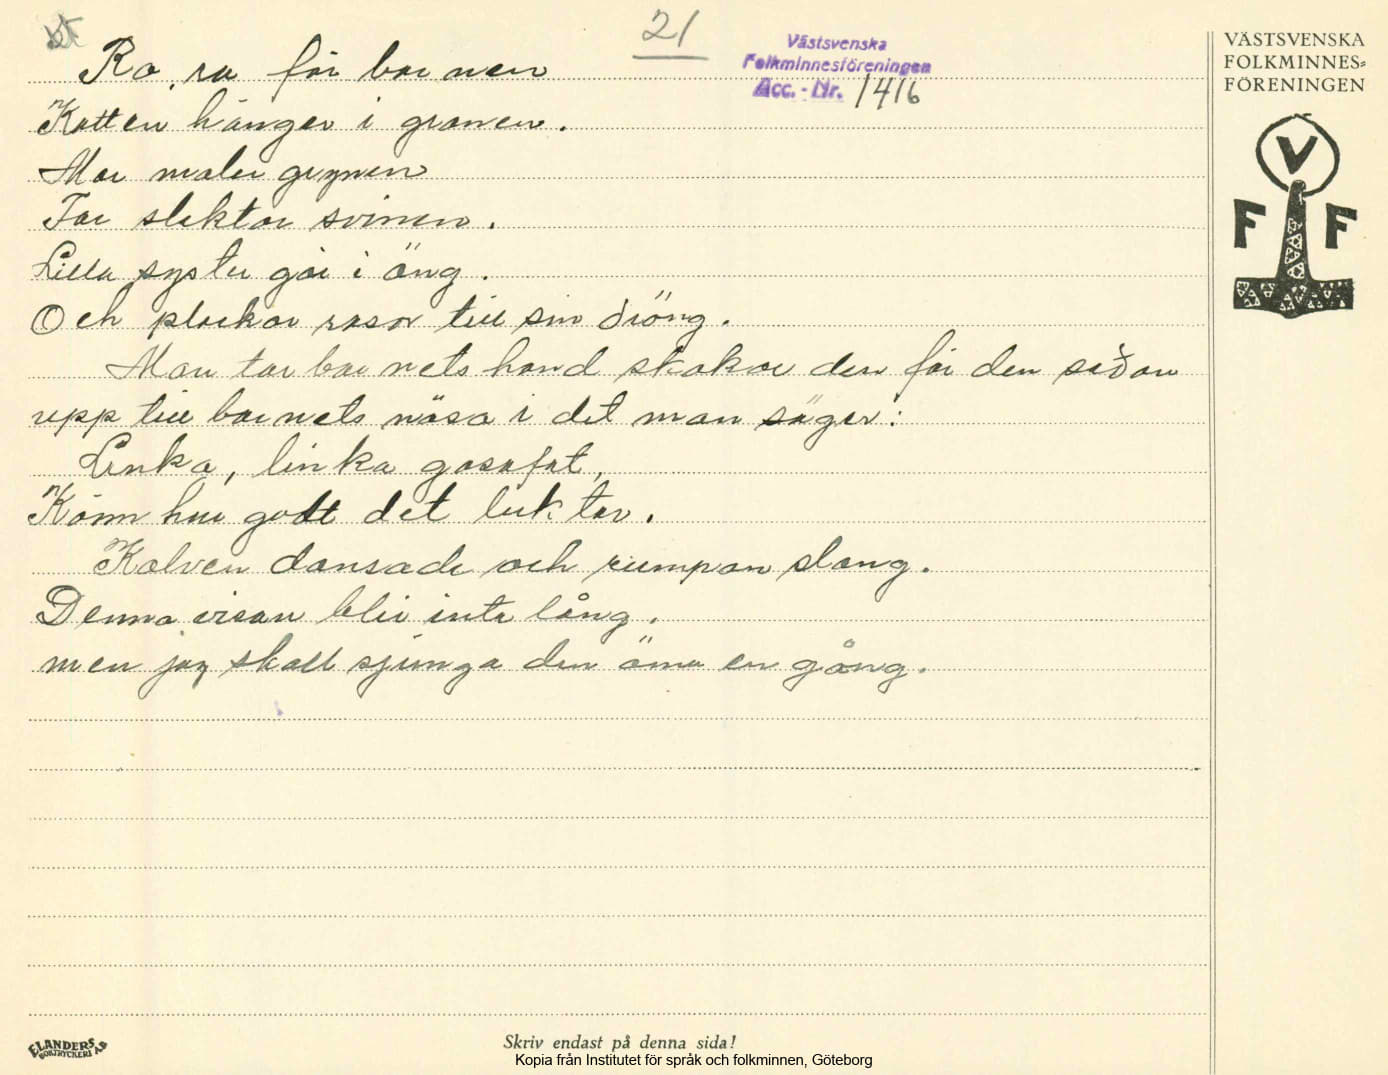 21
Västsvenska
Folkminnesföreningen
Acc.-Nr. 1416
VÄSTSVENSKA
FOLKMINNES-
FÖRENINGEN
V
F F
Ro, ro för barnen
Katten hänger i granen.
Mor maler grynen
Far slaktar svinen.
Lilla syster går i äng.
Och plockar rosor till sin dräng.
Man tar barnets hand skakar den för den sedan
upp till barnets näsa i det man säger:
Linka, linka gosafat,
Känn hur godt det luktar.
Kalven dansade och rumpan slang.
Denna visan blir inte lång.
men jag skall sjunga den ännu en gång.
ELANDERS
BOKTRYCKERI A-B
Skriv endast på denna sida!
Kopia från Institutet för språk och folkminnen, Göteborg